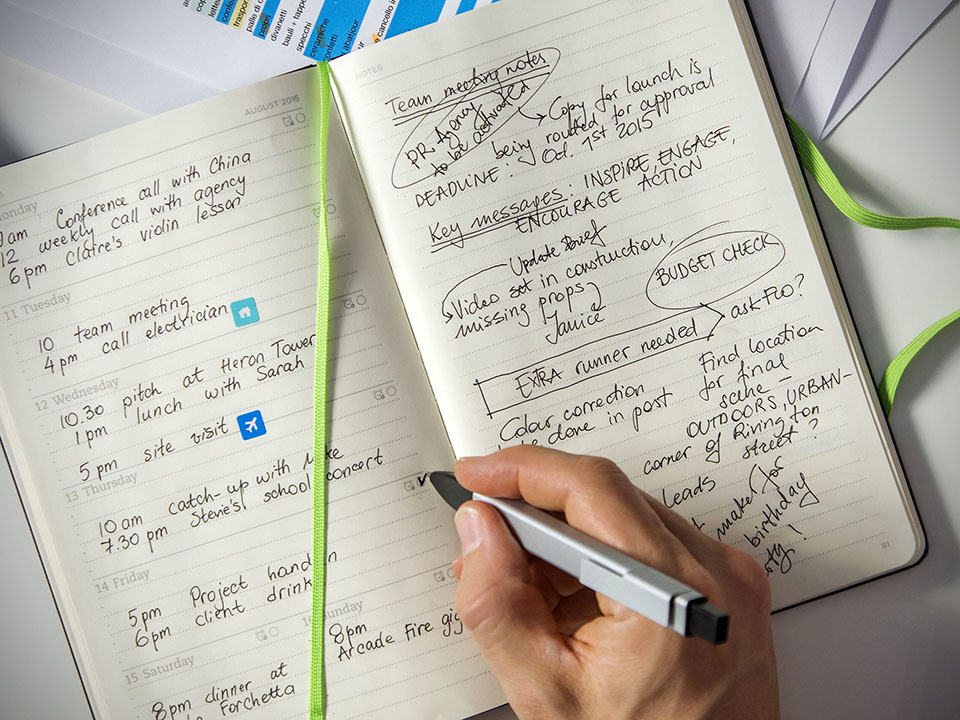 copri
lettere
confe
trasport
palle di
pappa
divanetti
bauli + tappe
specchi
confetti
ceramiche
confetti
abatjour
e cancello in
AUGUST 2015
onday
am Conference call with China
12 weekly call with agency
6 pm Claire's violin lesson
11 Tuesday
10 team meeting
4 pm call electrician
12 Wednesday
10.30 pitch at Heron Tower
1 pm lunch with Sarah
5 pm site visit
13 Thursday
10 am catch-up with Mike
7.30 pm Stevie's school concert
14 Friday
5 pm Project hand in
6 pm client drink
15 Saturday
8 pm dinner at
Forchetta
Sunday
8pm
Arcade Fire gig
NOTES
Team meeting notes
PR Agency
to be activated
Copy for launch is
being routed for approval
DEADLINE: Oct. 1st 2015!
Key messages: INSPIRE, ENGAGE,
ENCOURAGE ACTION
Update Brief
Video set in construction,
missing props
Janice
BUDGET CHECK
EXTRA runner needed
ask Foo?
Colour correction
be done in post
Find location
for final
scene –
OUTDOORS, URBAN-
corner of Rivington
street?
Leads
make for
birthday
81